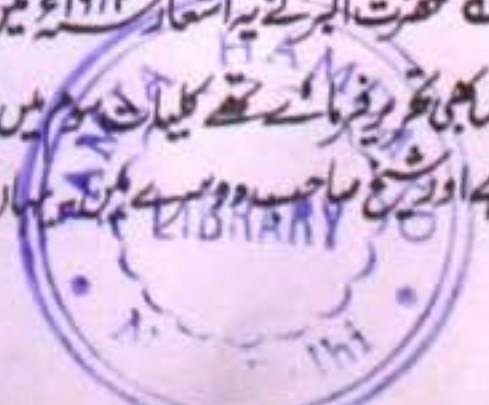 حضرت اکبر نے یہ اشعار سنہ ۱۹۱۲ء میں
بھی تحریر فرمائے تھے کلیات سوم میں
اور شیخ صاحب دوسرے ہیں
HAM
LIBRARY
lhi